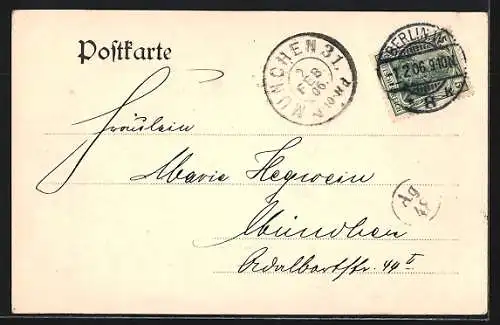 Postkarte
MÜNCHEN 31.
2
FEB
06.
BERLIN
1.2.06. 9-10N.
Fräulein
Marie Hegwein
Ag
München
Adalbertstr. 49 II